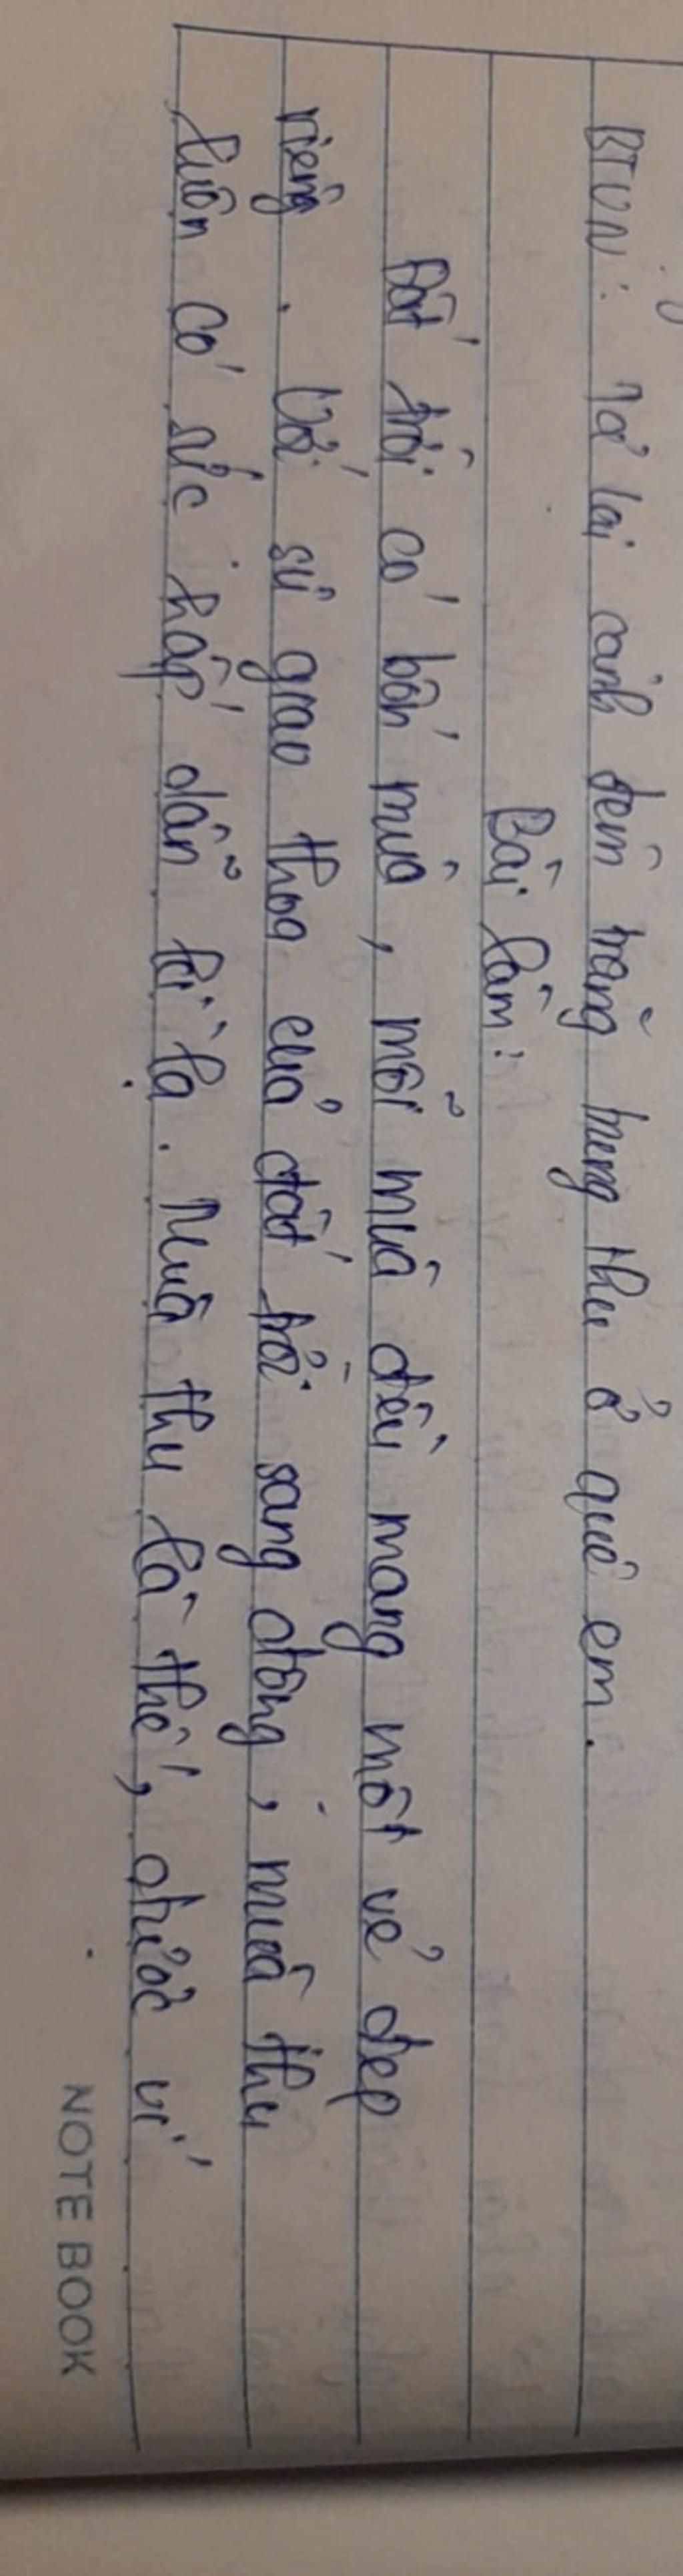 BTVN: Tả lại cảnh đêm trăng trung thu ở quê em.
Bài làm:
Đất trời có bốn mùa, mỗi mùa đều mang một vẻ đẹp
riêng. Với sự giao thoa của đất trời sang đông, mùa thu
luôn có sức hấp dẫn kì lạ. Mùa thu là thế, được ví
NOTE BOOK